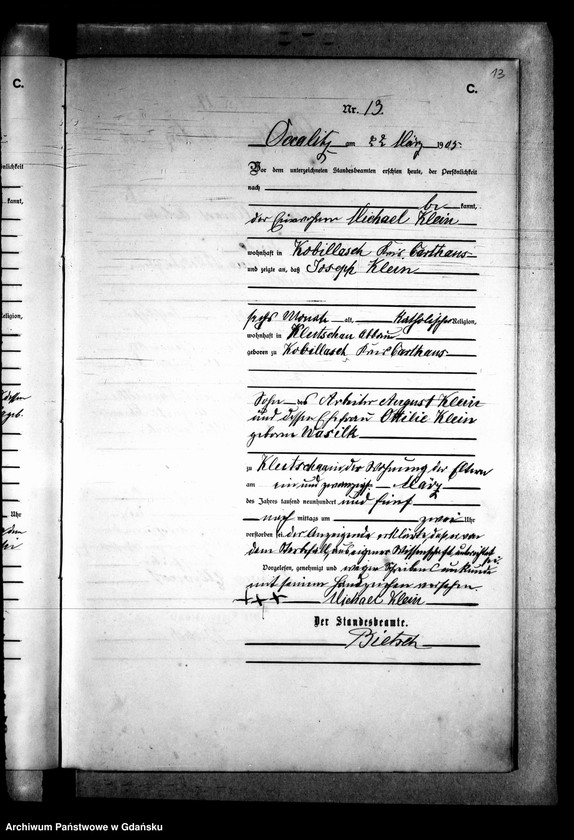 13
C.
C.
Nr. 13.
am 22 März 1905.
Vor dem unterzeichneten Standesbeamten erschien heute, der Persönlichkeit
nach
be kannt,
der Einwohner Michael Klein
wohnhaft in Kobillasch Kreis Carthaus
und zeigte an, daß Joseph Klein
sechs Monate alt, katholischer Religion,
wohnhaft in Kleitschau Abbau
geboren zu Kobillasch Kreis Carthaus
Sohn des Arbeiter August Klein
und dessen Ehefrau Ottilie Klein
geborene Wasilk
zu in der Wohnung der Eltern
am ein und zwanzigsten März
des Jahres tausend neunhundert und fünf
nach mittags um zwei Uhr
verstorben sei der Anzeigende erklärte, daß er von
dem Sterbfall aus eigener Wissenschaft unterrichtet
sei.
Vorgelesen, genehmigt und wegen Schreibens unkunde
mit seinem Handzeichen versehen.
+++ Michael Klein
Der Standesbeamte.
Bietsch
Archiwum Państwowe w Gdańsku